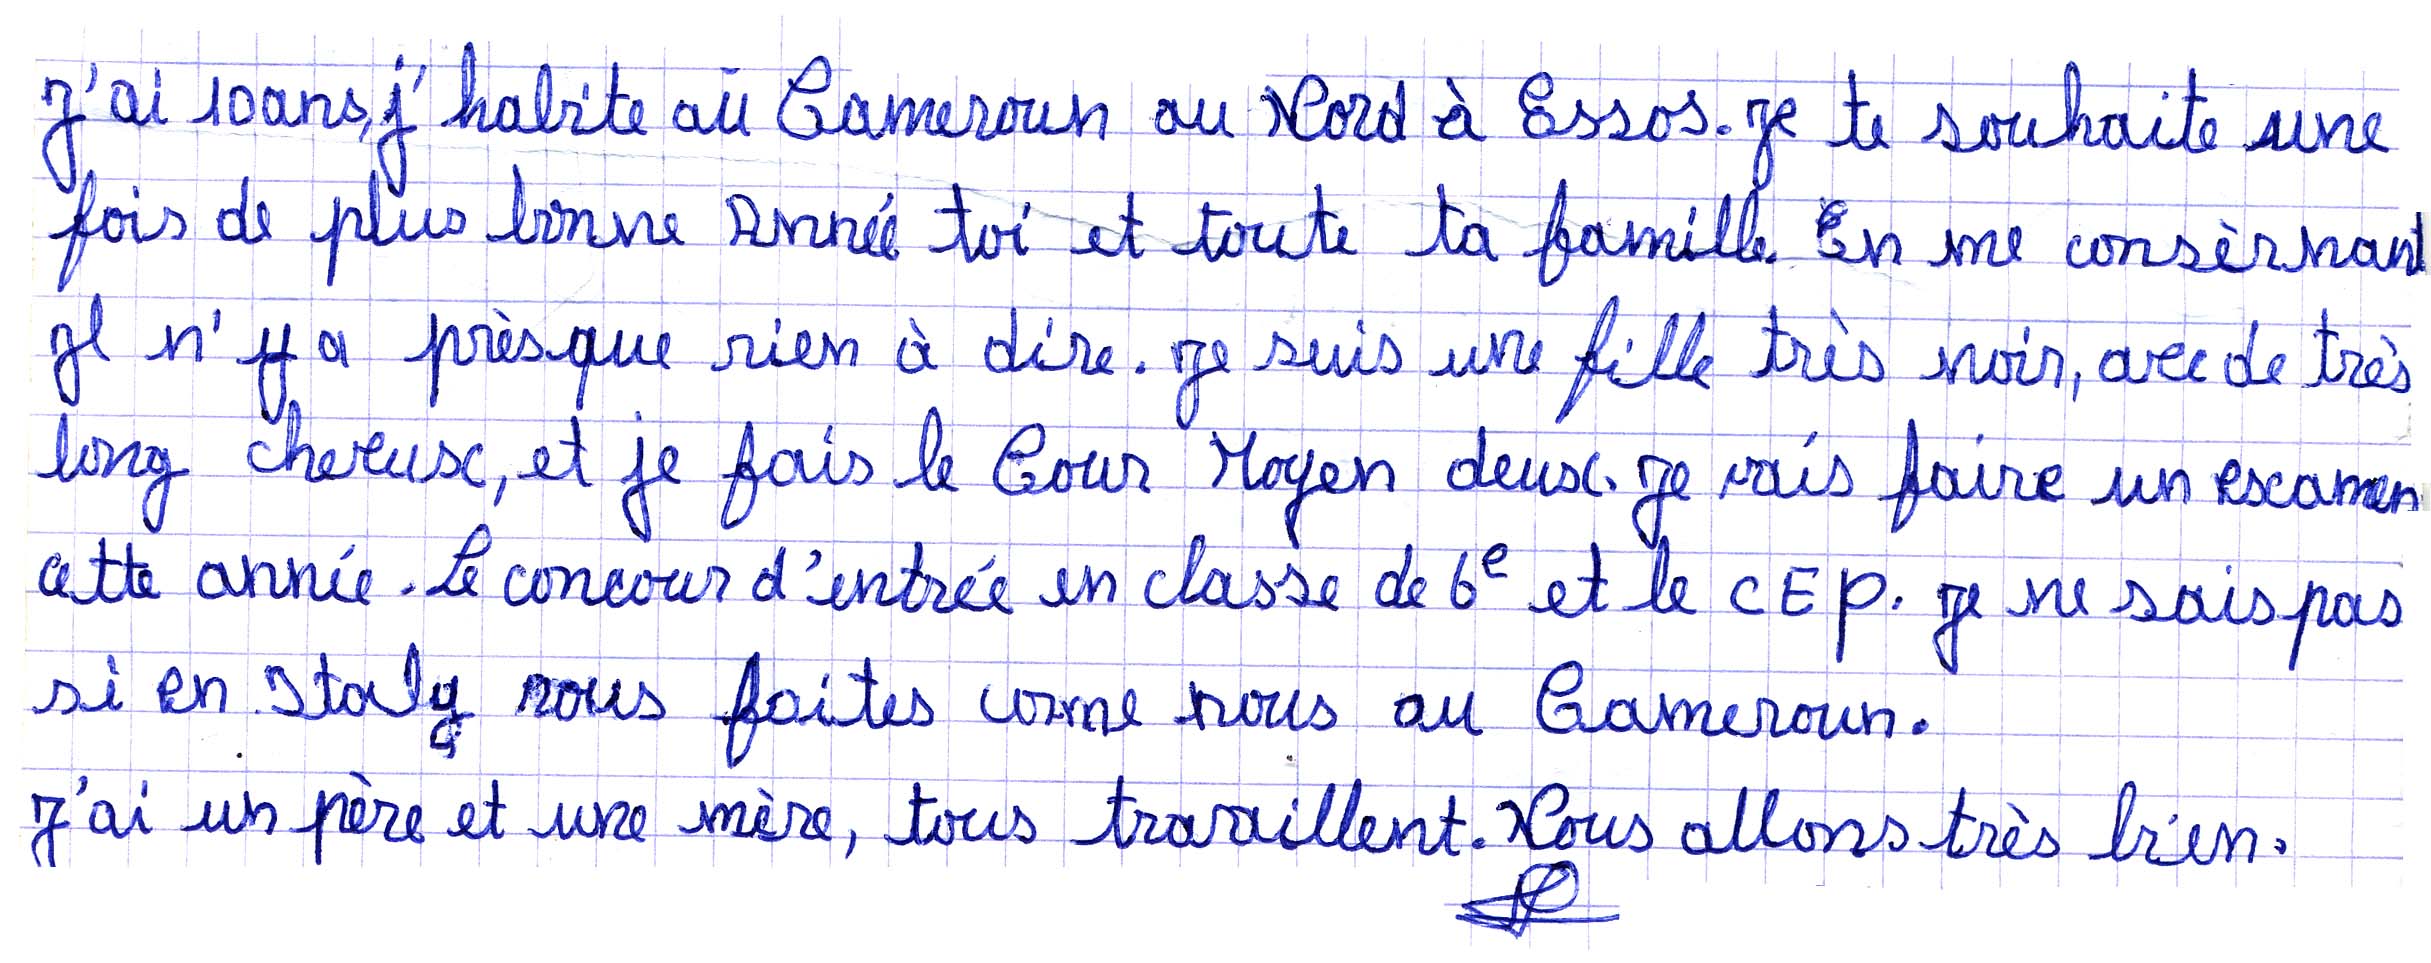 J'ai 10ans, j'habite au Cameroun au Nord à Essos. Je te souhaite une
fois de plus bonne Année toi et toute ta famille. En me consèrnant
Il n'y a près que rien à dire. Je suis une fille très noir, avec de très
long cheveux, et je fais le Cour Moyen deux. Je vais faire un examen
cette année. Le concour d'entrée en classe de 6e et le CEP. Je ne sais pas
si en Italy vous faites come nous au Cameroun.
J'ai un père et une mère, tous travaillent. Nous allons très bien.